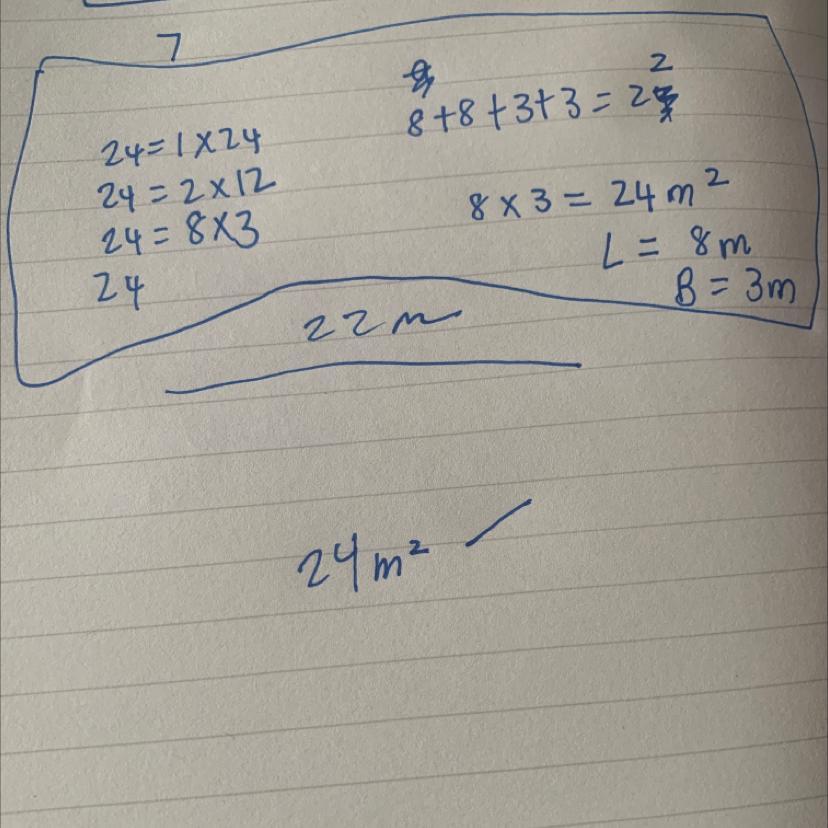 7
24 = 1 x 24
24 = 2 x 12
24 = 8 x 3
24
8 + 8 + 3 + 3 = 22
8 x 3 = 24 m²
L = 8m
B = 3m
22 m
24 m²